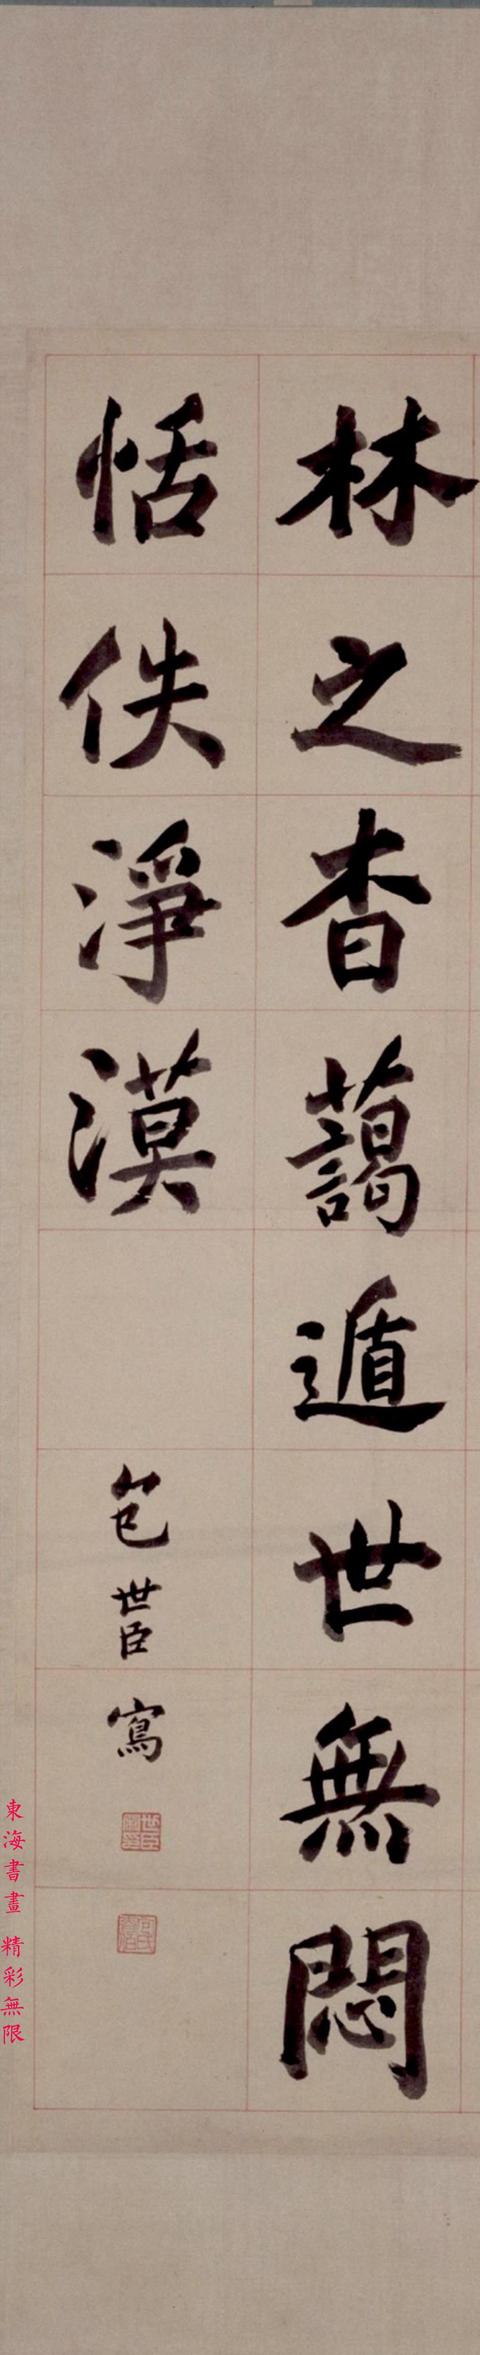 林之杳藹遁世無悶
恬佚淨漠
包世臣寫
東海書畫 精彩無限